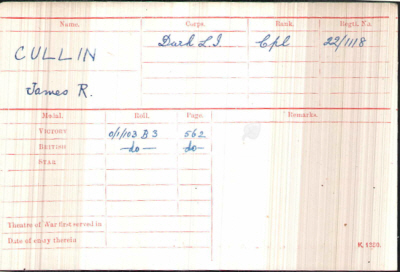 Name. Corps. Rank. Regtl. No.
CULLIN Durh L.I. Cpl 22/1118
James R.
Medal. Roll. Page. Remarks.
VICTORY O/1/103 B3 562
BRITISH -do- -do-
STAR
Theatre of War first served in
Date of entry therein
K. 1380.